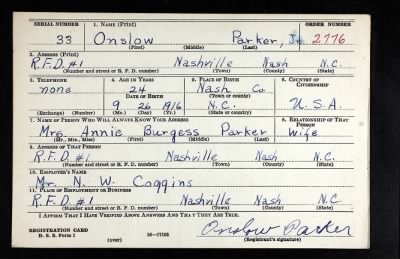 SERIAL NUMBER 1. NAME (Print) ORDER NUMBER
33 Onslow Parker, Jr. 2776
(First) (Middle) (Last)
2. ADDRESS (Print)
R.F.D. #1 Nashville Nash N.C.
(Number and street or R. F. D. number) (Town) (County) (State)
3. TELEPHONE 4. AGE IN YEARS 5. PLACE OF BIRTH 6. COUNTRY OF CITIZENSHIP
none 24 Nash Co.
DATE OF BIRTH (Town or county)
9 26 1916 N.C. U.S.A.
(Exchange) (Number) (Mo.) (Day) (Yr.) (State or country)
7. NAME OF PERSON WHO WILL ALWAYS KNOW YOUR ADDRESS 8. RELATIONSHIP OF THAT PERSON
Mrs. Annie Burgess Parker Wife
(Mr., Mrs., Miss) (First) (Middle) (Last)
9. ADDRESS OF THAT PERSON
R.F.D. #1 Nashville Nash N.C.
(Number and street or R. F. D. number) (Town) (County) (State)
10. EMPLOYER'S NAME
Mr. N. W. Coggins
11. PLACE OF EMPLOYMENT OR BUSINESS
R.F.D. #1 Nashville Nash N.C.
(Number and street or R. F. D. number) (Town) (County) (State)
I AFFIRM THAT I HAVE VERIFIED ABOVE ANSWERS AND THAT THEY ARE TRUE.
REGISTRATION CARD
D. S. S. Form 1 16—17105 Onslow Parker
(over) (Registrant's signature)